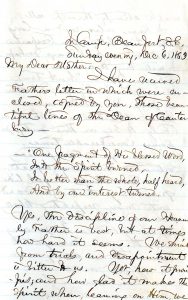 In Camp, Beaufort, S.C.
Sunday evening, Dec 6, 1863
My Dear Mother:
I have received
Fathers letter in which were en-
closed, copied by you, those beau-
tiful lines of the Dean of Canter-
bury—
"One fragment of His blessed Word
Into thy Spirit burned
Is better than the whole, half heard
And by one interest turned.
Yes, the discipline of our Heavenly
Father is best, but at times
how hard it seems. We
from trials and disappointment
is bitter to us. Yet, how it
and how glad it makes
Spirit when leaning on Him,